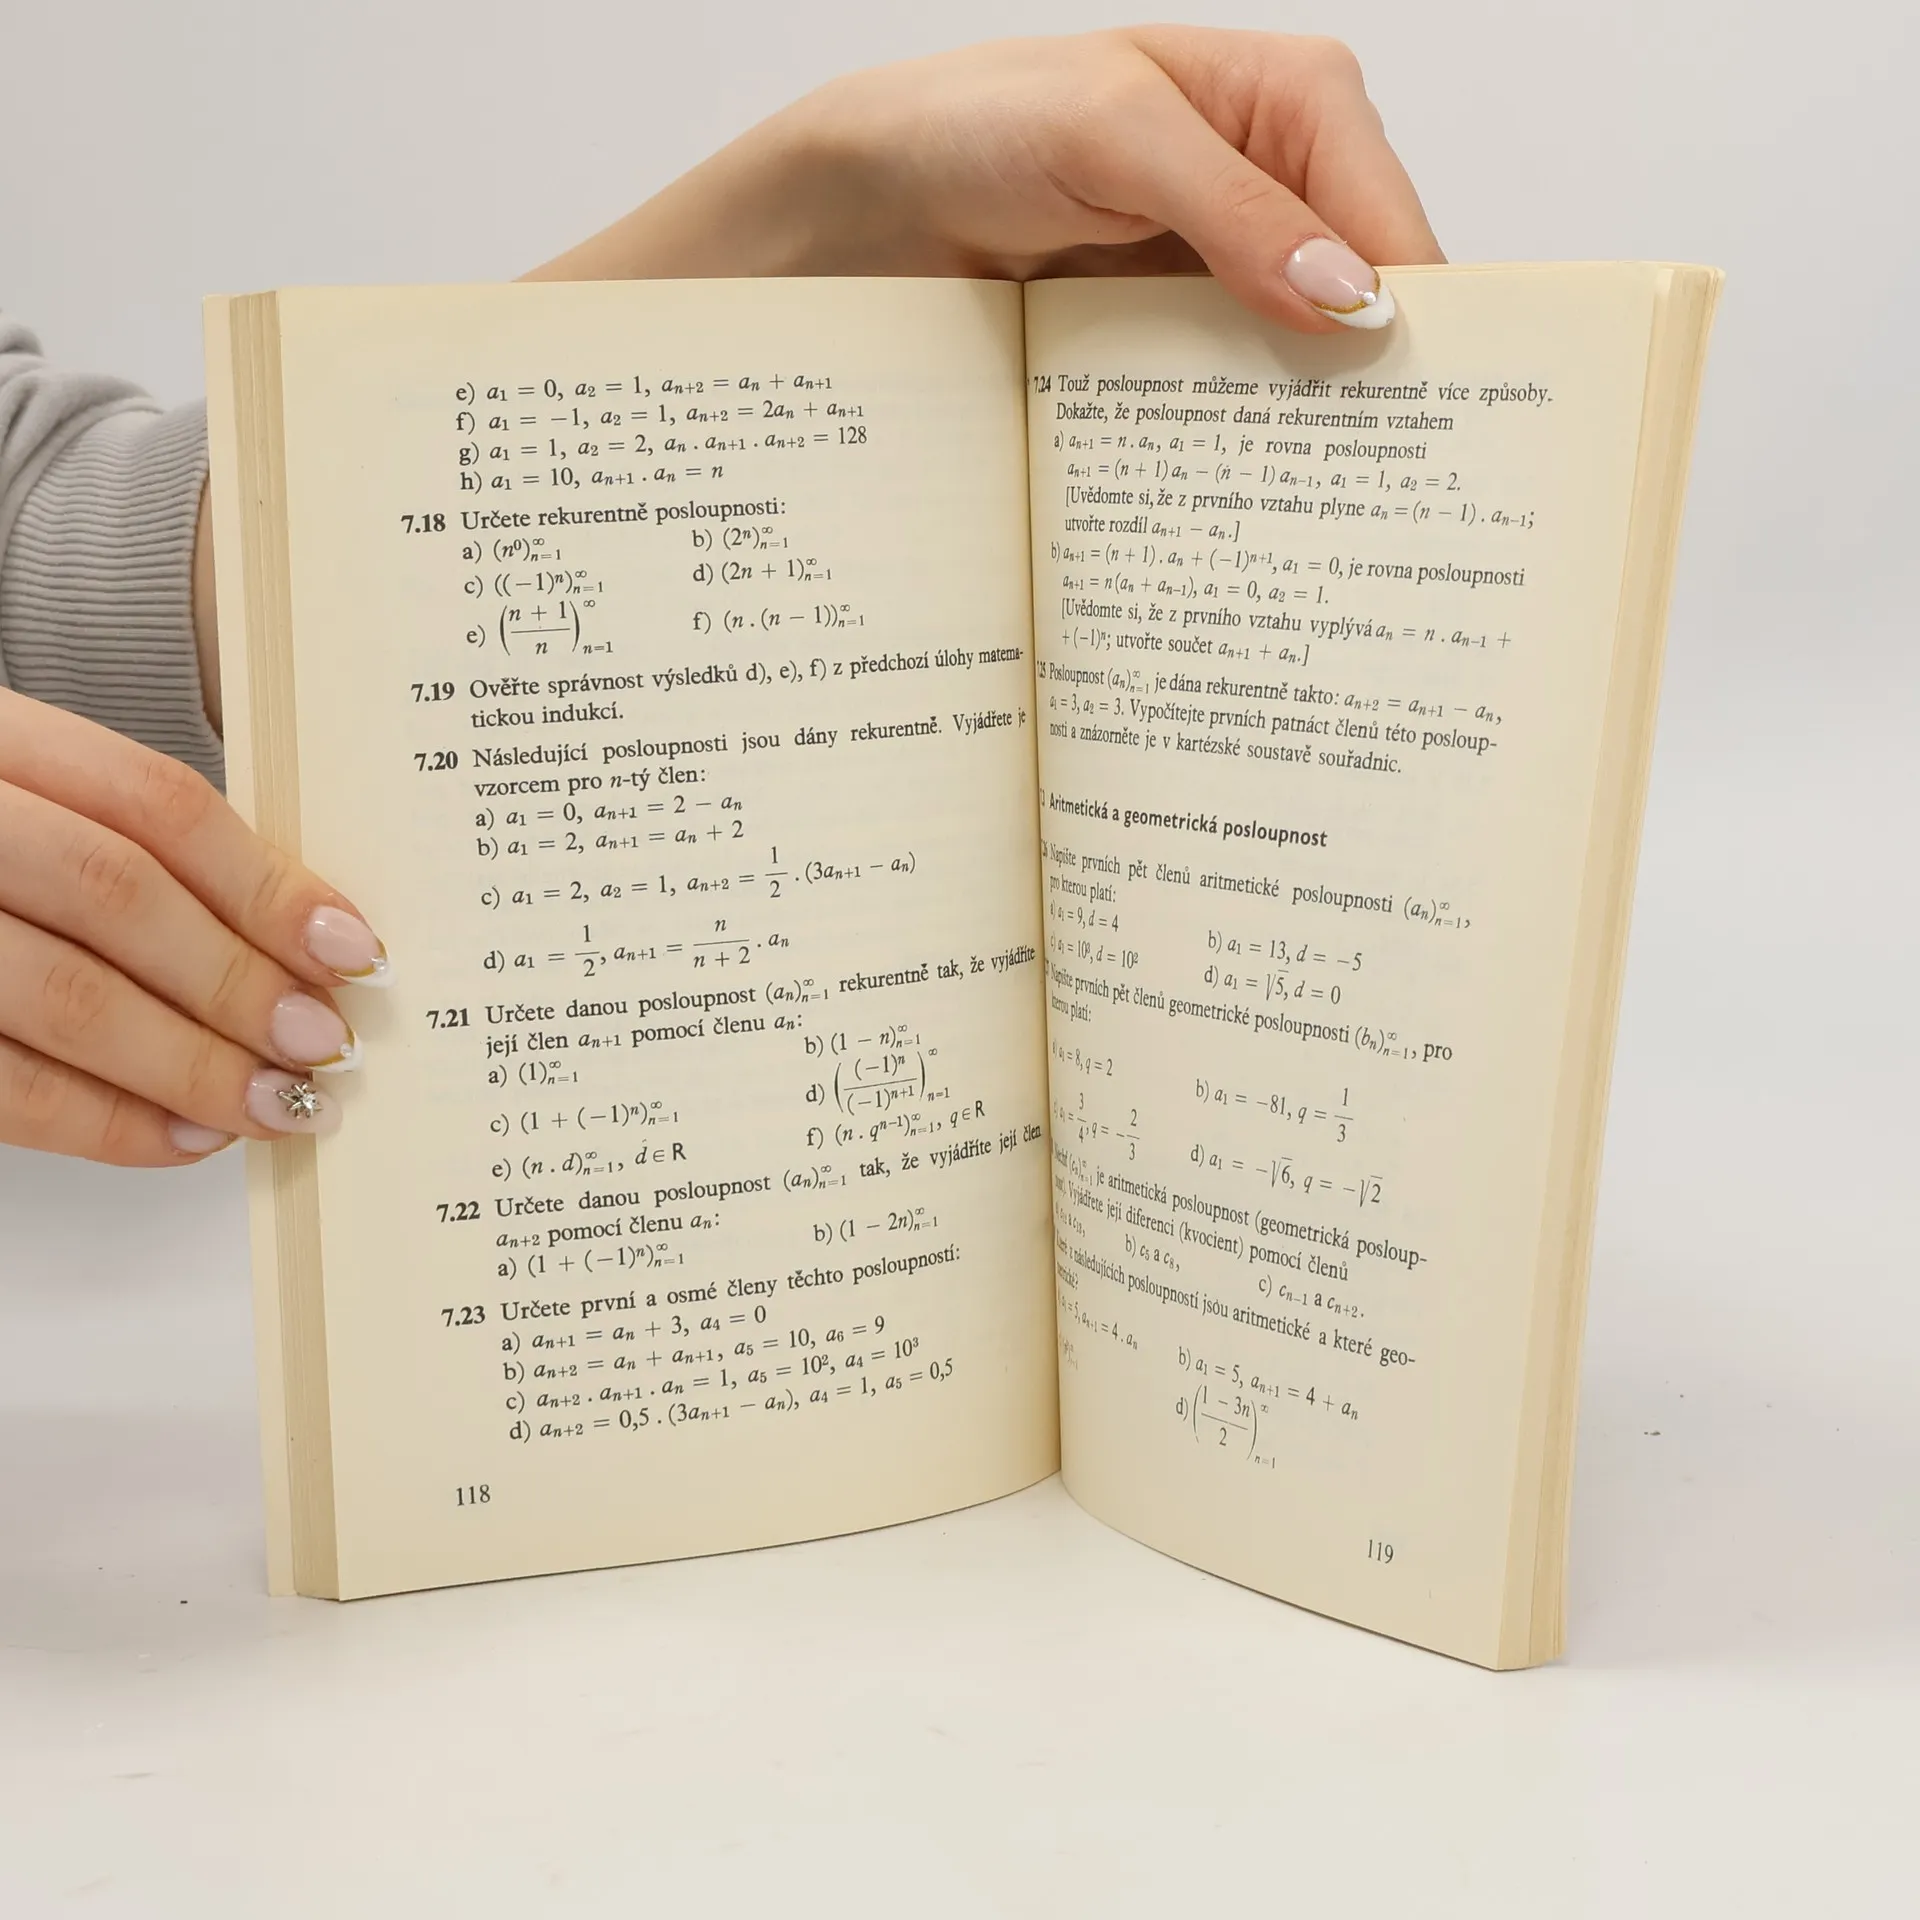 e) a₁ = 0, a₂ = 1, aₙ₊₂ = aₙ + aₙ₊₁
f) a₁ = −1, a₂ = 1, aₙ₊₂ = 2aₙ + aₙ₊₁
g) a₁ = 1, a₂ = 2, aₙ . aₙ₊₁ . aₙ₊₂ = 128
h) a₁ = 10, aₙ₊₁ . aₙ = n
7.18 Určete rekurentně posloupnosti:
a) (n⁰)ₙ₌₁^∞ b) (2ⁿ)ₙ₌₁^∞
c) ((−1)ⁿ)ₙ₌₁^∞ d) (2n + 1)ₙ₌₁^∞
e) ((n + 1)/n)ₙ₌₁^∞ f) (n . (n − 1))ₙ₌₁^∞
7.19 Ověřte správnost výsledků d), e), f) z předchozí úlohy matema-
tickou indukcí.
7.20 Následující posloupnosti jsou dány rekurentně. Vyjádřete je
vzorcem pro n-tý člen:
a) a₁ = 0, aₙ₊₁ = 2 − aₙ
b) a₁ = 2, aₙ₊₁ = aₙ + 2
c) a₁ = 2, a₂ = 1, aₙ₊₂ = 1/2 . (3aₙ₊₁ − aₙ)
d) a₁ = 1/2, aₙ₊₁ = n/(n + 2) . aₙ
7.21 Určete danou posloupnost (aₙ)ₙ₌₁^∞ rekurentně tak, že vyjádříte
její člen aₙ₊₁ pomocí členu aₙ:
a) (1)ₙ₌₁^∞ b) (1 − n)ₙ₌₁^∞
c) (1 + (−1)ⁿ)ₙ₌₁^∞ d) ((−1)ⁿ/(−1)ⁿ⁺¹)ₙ₌₁^∞
e) (n . d)ₙ₌₁^∞, d ∈ R f) (n . qⁿ⁻¹)ₙ₌₁^∞, q ∈ R
7.22 Určete danou posloupnost (aₙ)ₙ₌₁^∞ tak, že vyjádříte její člen
aₙ₊₂ pomocí členu aₙ:
a) (1 + (−1)ⁿ)ₙ₌₁^∞ b) (1 − 2n)ₙ₌₁^∞
7.23 Určete první a osmé členy těchto posloupností:
a) aₙ₊₁ = aₙ + 3, a₄ = 0
b) aₙ₊₂ = aₙ + aₙ₊₁, a₅ = 10, a₆ = 9
c) aₙ₊₂ . aₙ₊₁ . aₙ = 1, a₅ = 10², a₄ = 10³
d) aₙ₊₂ = 0,5 . (3aₙ₊₁ − aₙ), a₄ = 1, a₅ = 0,5
118
7.24 Touž posloupnost můžeme vyjádřit rekurentně více způsoby.
Dokažte, že posloupnost daná rekurentním vztahem
a) aₙ₊₁ = n . aₙ, a₁ = 1, je rovna posloupnosti
aₙ₊₁ = (n + 1) aₙ − (n − 1) aₙ₋₁, a₁ = 1, a₂ = 2.
[Uvědomte si, že z prvního vztahu plyne aₙ = (n − 1) . aₙ₋₁;
utvořte rozdíl aₙ₊₁ − aₙ.]
b) aₙ₊₁ = (n + 1) . aₙ + (−1)ⁿ⁺¹, a₁ = 0, je rovna posloupnosti
aₙ₊₁ = n(aₙ + aₙ₋₁), a₁ = 0, a₂ = 1.
[Uvědomte si, že z prvního vztahu vyplývá aₙ = n . aₙ₋₁ +
+ (−1)ⁿ; utvořte součet aₙ₊₁ + aₙ.]
Posloupnost (aₙ)ₙ₌₁^∞ je dána rekurentně takto: aₙ₊₂ = aₙ₊₁ − aₙ,
a₁ = 3, a₂ = 3. Vypočítejte prvních patnáct členů této posloup-
nosti a znázorněte je v kartézské soustavě souřadnic.
Aritmetická a geometrická posloupnost
Napište prvních pět členů aritmetické posloupnosti (aₙ)ₙ₌₁^∞,
pro kterou platí:
a) a₁ = 9, d = 4 b) a₁ = 13, d = −5
c) a₁ = 10⁸, d = 10² d) a₁ = √5, d = 0
Napište prvních pět členů geometrické posloupnosti (bₙ)ₙ₌₁^∞, pro
kterou platí:
a₁ = 8, q = 2 b) a₁ = −81, q = 1/3
a₁ = 3/4, q = −2/3 d) a₁ = −√6, q = −√2
je aritmetická posloupnost (geometrická posloup-
Vyjádřete její diferenci (kvocient) pomocí členů
b) c₅ a c₈, c) cₙ₋₁ a cₙ₊₂.
z následujících posloupností jsou aritmetické a které geo-
a₁ = 5, aₙ₊₁ = 4 . aₙ b) a₁ = 5, aₙ₊₁ = 4 + aₙ
d) ((1 − 3n)/2)ₙ₌₁^∞
119